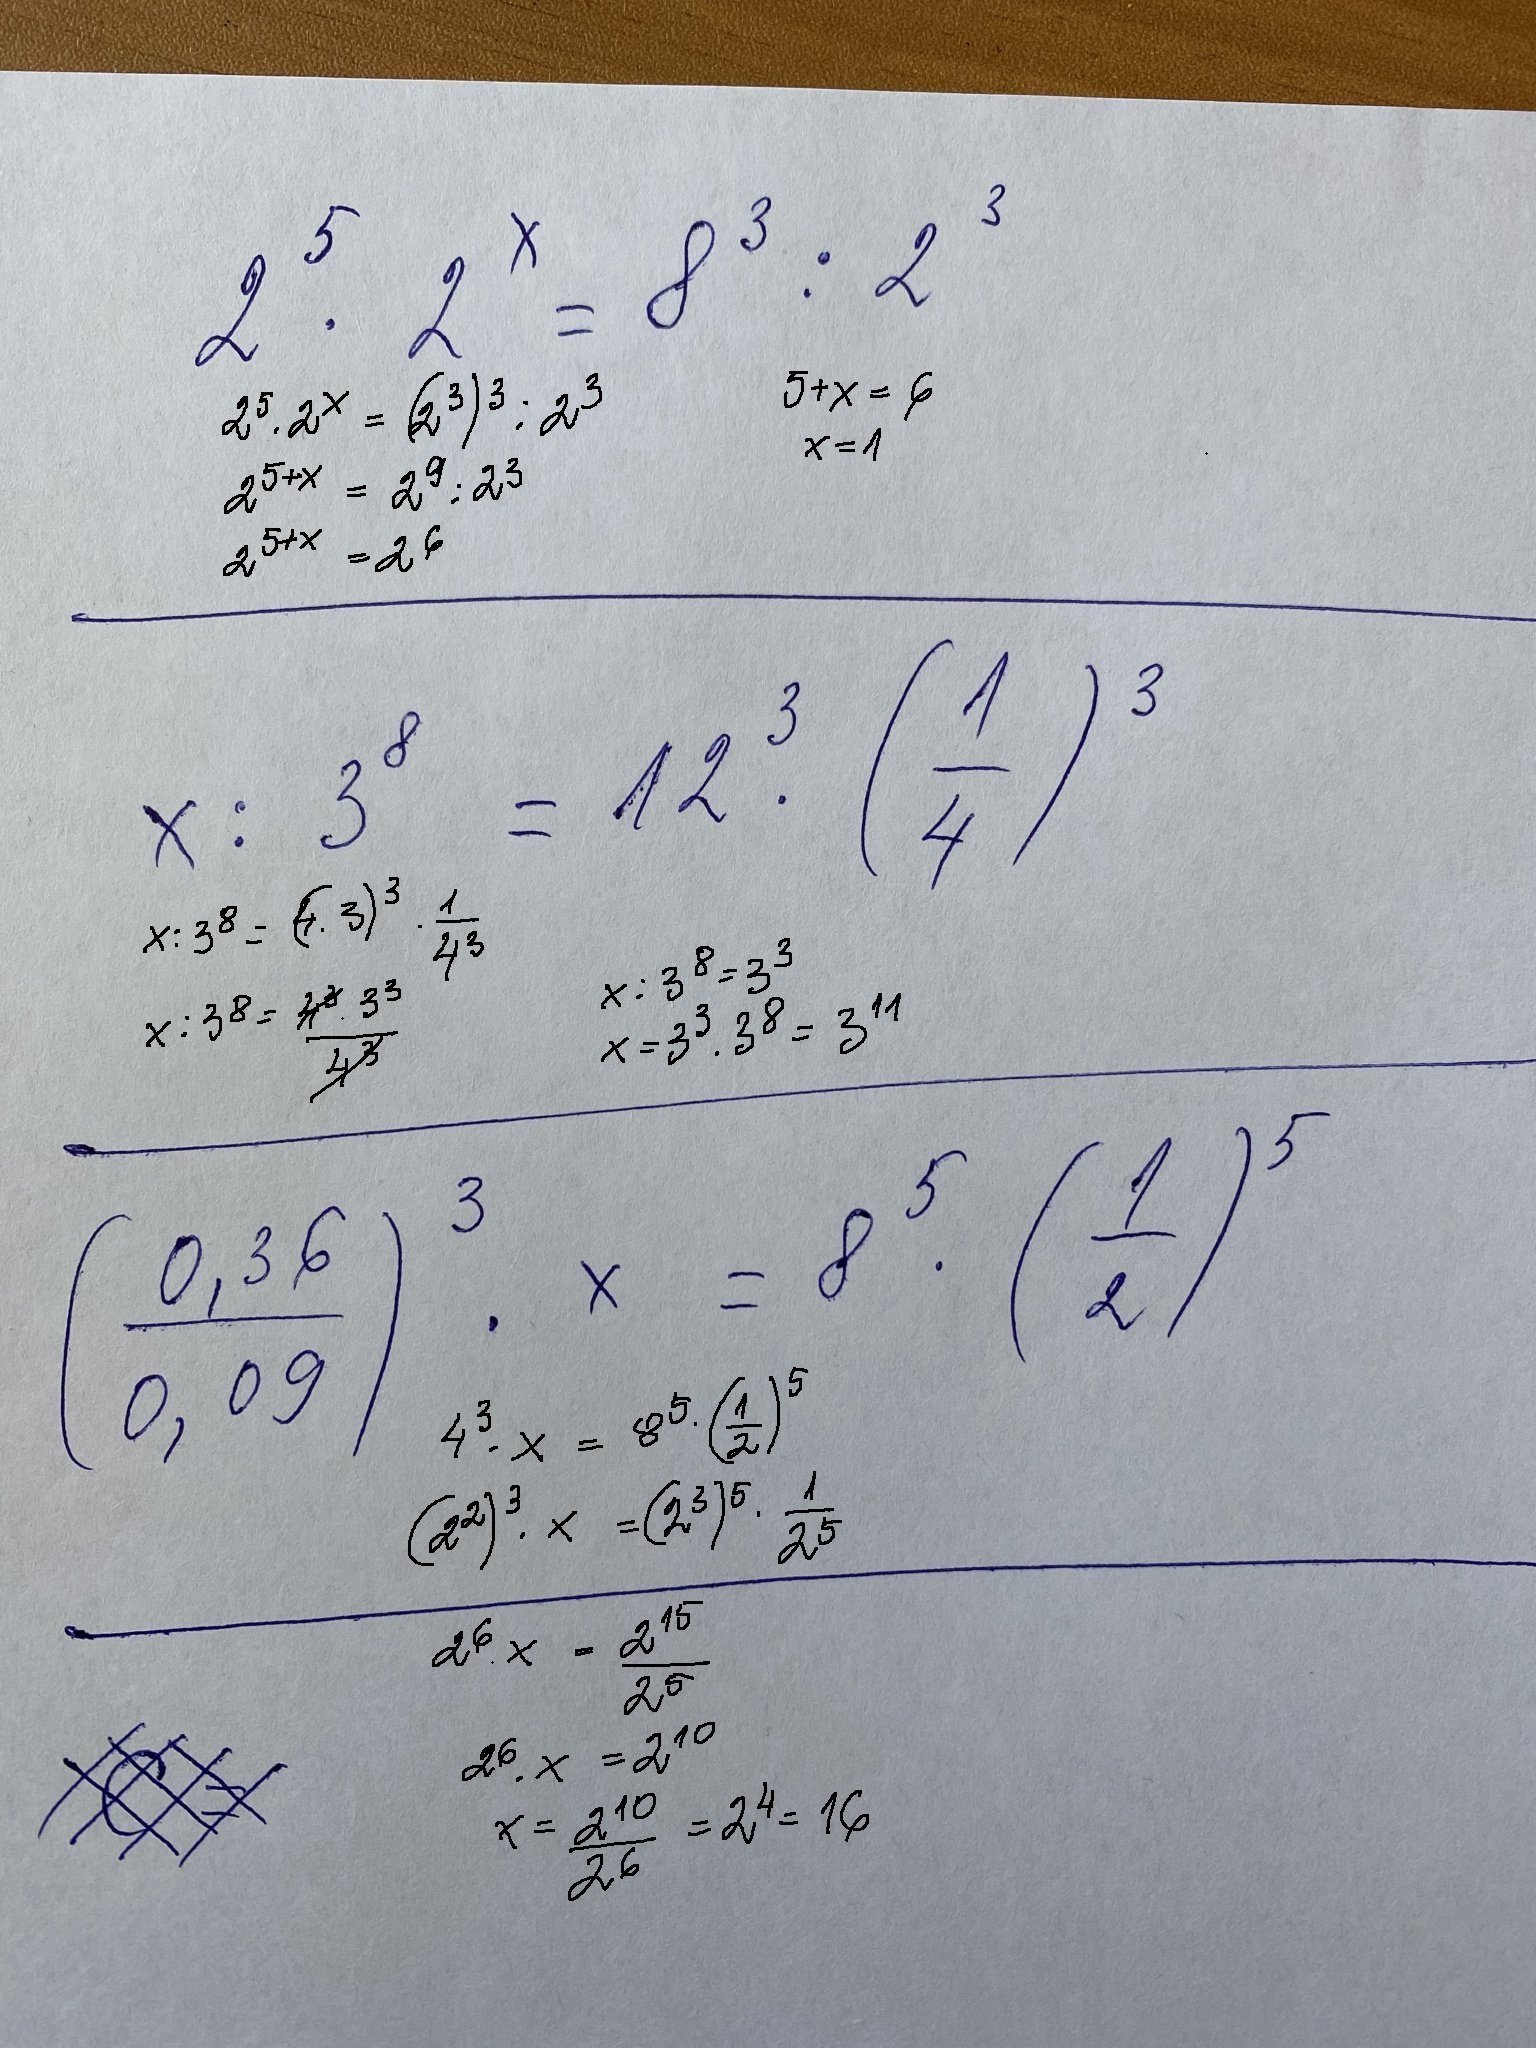 2⁵ · 2ˣ = 8³ : 2³
2⁵ · 2ˣ = (2³)³ : 2³
2⁵⁺ˣ = 2⁹ : 2³
2⁵⁺ˣ = 2⁶
5+x = 6
x = 1
x : 3⁸ = 12³ · (1/4)³
x : 3⁸ = (4 · 3)³ · 1/4³
x : 3⁸ = 4³ · 3³/4³
x : 3⁸ = 3³
x = 3³ · 3⁸ = 3¹¹
(0,36/0,09)³ · x = 8⁵ · (1/2)⁵
4³ · x = 8⁵ · (1/2)⁵
(2²)³ · x = (2³)⁵ · 1/2⁵
2⁶ · x = 2¹⁵/2⁵
2⁶ · x = 2¹⁰
x = 2¹⁰/2⁶ = 2⁴ = 16